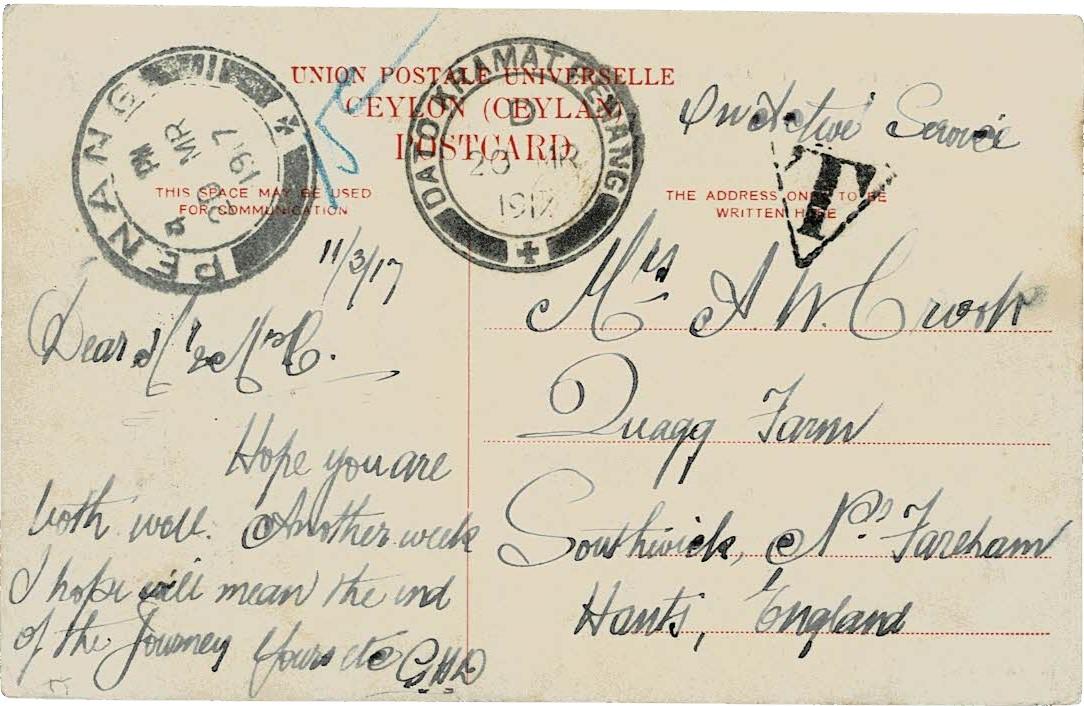 UNION POSTALE UNIVERSELLE
CEYLON (CEYLAN)
POSTCARD
THIS SPACE MAY BE USED
FOR COMMUNICATION
THE ADDRESS ONLY TO BE
WRITTEN HERE
PENANG
PM
20 MR
1917
DATO KRAMAT. PENANG
D
20 MR
1917
On Active Service
T
11/3/17
Dear Mr & Mrs C.
Hope you are
both well. Another week
I hope will mean the end
of the Journey Yours etc GHD
Mrs A. W. Crook
Quagg Farm
Southwick, Nr Fareham
Hants, England